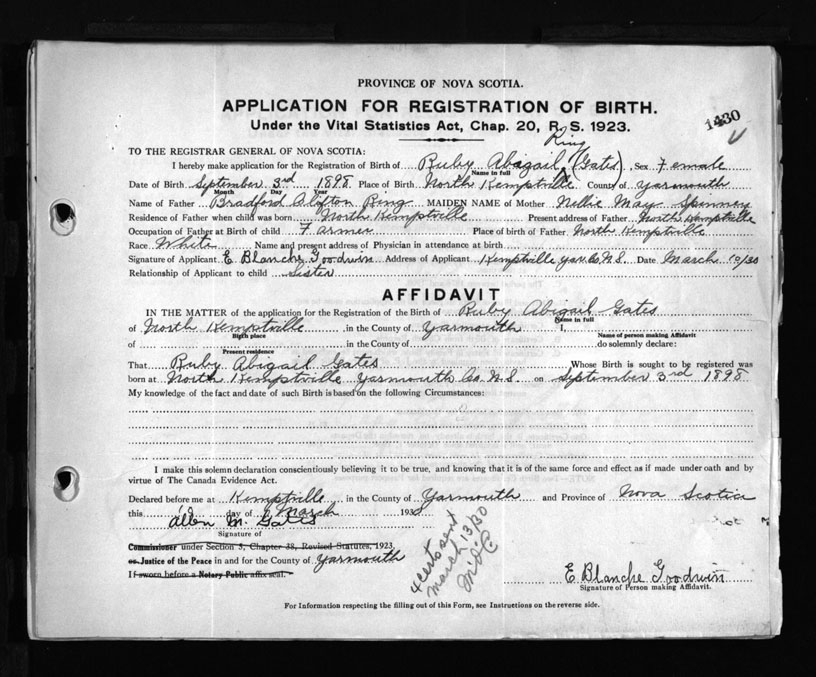 PROVINCE OF NOVA SCOTIA.
APPLICATION FOR REGISTRATION OF BIRTH.
Under the Vital Statistics Act, Chap. 20, R. S. 1923.
1430
TO THE REGISTRAR GENERAL OF NOVA SCOTIA:
Ring
I hereby make application for the Registration of Birth of Ruby Abagail (Gates) Sex Female
Name in full
Date of Birth September 3rd 1898 Place of Birth North Kemptville County of Yarmouth
Month Day Year
Name of Father Bradford Alifton Ring MAIDEN NAME of Mother Nellie May Spinney
Residence of Father when child was born North Kemptville Present address of Father North Kemptville
Occupation of Father at Birth of child Farmer Place of birth of Father North Kemptville
Race White Name and present address of Physician in attendance at birth
Signature of Applicant E Blanche Goodwin Address of Applicant Kemptville Yar. Co N.S. Date March 10/30
Relationship of Applicant to child Sister
AFFIDAVIT
IN THE MATTER of the application for the Registration of the Birth of Ruby Abigail Gates
Name in full
of North Kemptville in the County of Yarmouth I,
Birth place Name of person making Affidavit
of in the County of do solemnly declare:
Present residence
That Ruby Abigail Gates Whose Birth is sought to be registered was
born at North Kemptville Yarmouth Co. N.S. on September 3rd 1898
My knowledge of the fact and date of such Birth is based on the following Circumstances:
I make this solemn declaration conscientiously believing it to be true, and knowing that it is of the same force and effect as if made under oath and by
virtue of The Canada Evidence Act.
Declared before me at Kemptville in the County of Yarmouth and Province of Nova Scotia
this 10 day of March 1930
Allen M. Gates
Signature of
Commissioner under Section 5, Chapter 38, Revised Statutes, 1923,
or Justice of the Peace in and for the County of Yarmouth
If sworn before a Notary Public affix seal.
4 certs sent
March 13/30
E Blanche Goodwin
Signature of Person making Affidavit.
For Information respecting the filling out of this Form, see Instructions on the reverse side.